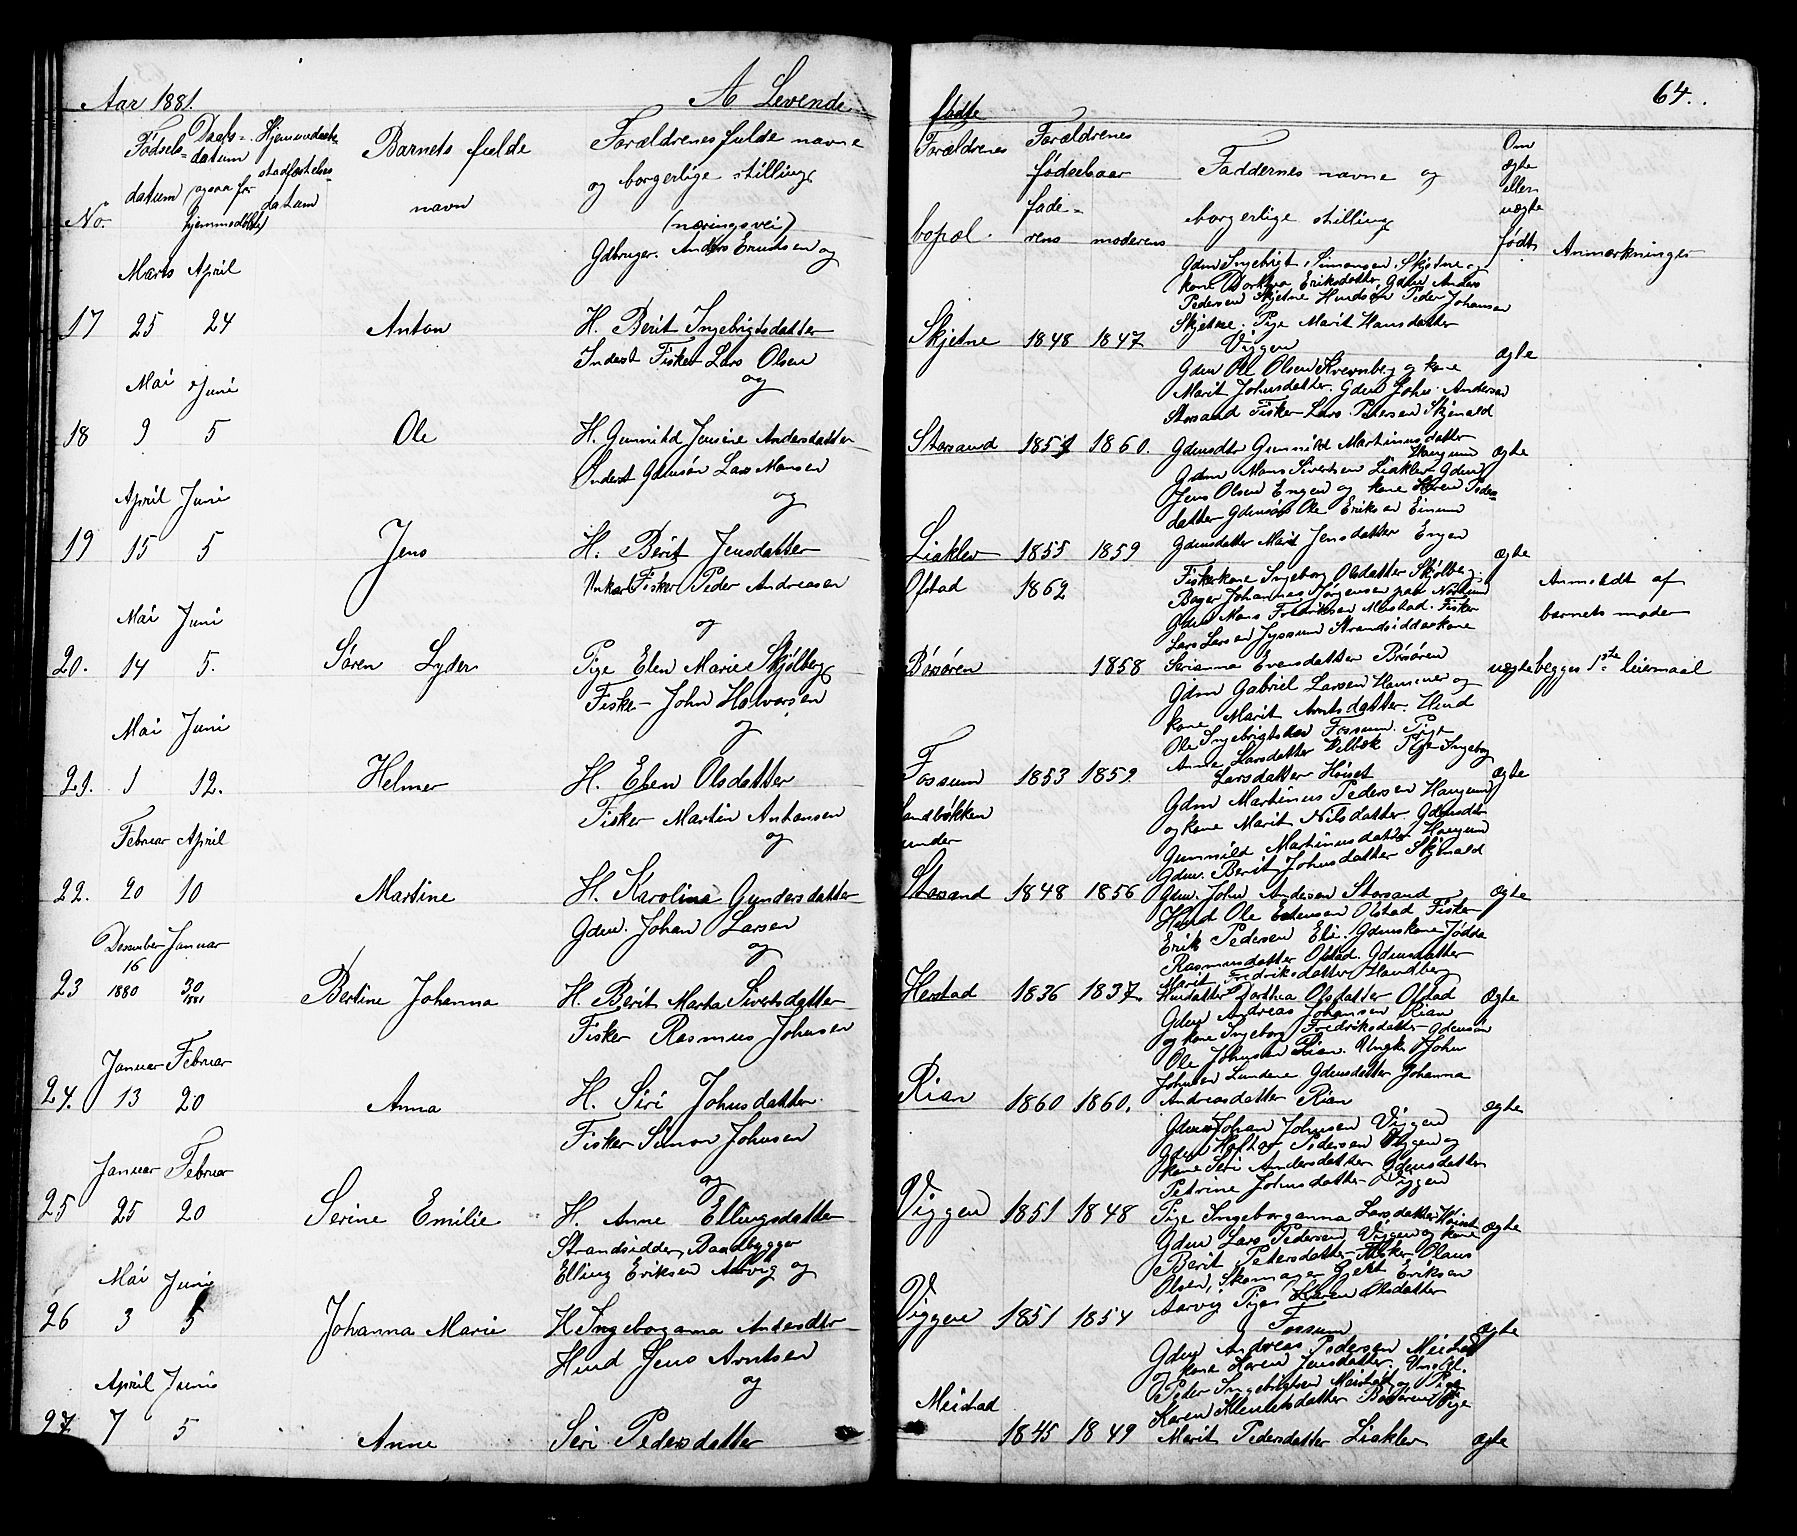 Aar 1881.
A Levende
fødte
64.
No.
Fødsels=
datum
Daabs=
datum
(ogsaa for
hjemmedøbte)
Hjemmedaabs
stadfæstelses
datum
Barnets fulde
navn
Forældrenes fulde navne
og borgerlige stilling
(næringsvei)
Forældrenes
bopæl.
Forældrenes
fødselsaar
fade=
rens
moderens
Faddernes navne og
borgerlige stilling
Om
ægte
eller
uægte
født
Anmærkninger
Marts April
17 25 24 Anton
Gdbruger. Anders Knudsen og
H. Berit Ingebrigtsdatter
Skjetne 1848 1847
Gdm Ingebrigt Simonsen Skjetne og
kone Eriksdatter, Gdm Anders
Pedersen Skjetne Peder Johansen
Skjetne. Pige Marit Hansdatter
Viggen
ægte
Mai Juni
18 9 5 Ole
Inderst Fisker Lars Olsen
og
H. Gunnild Jensine Andersdatter
Storsand 1860.
Gdm Ole Olsen Kvernberg og kone
Marit Johnsdatter. Gdm John Andersen
Storsand Fisker Lars Petersen Skjenald
Gdmsdtr Gunnild Martinusdatter
Haugum
ægte
April Juni
19 15 5 Jens
Inderst Gdmsøn Lars Monsen
og
H. Berit Jensdatter
Liaklev 1855 1859
Gdm Mons Sivertsen Liaklev Gdm
Jens Olsen Engen og kone Karen Peders
datter Gdmsøn Ole Eriksen Einum
Gdmsdatter Marit Jensdatter Engen
ægte
Mai Juni
20. 14 5. Søren Lyder
Unkarl Fisker Peder Andreasen
og
Pige Elen Marie Skjølberg
Ofstad 1862
Børsøren 1858
Fiskerkone Ingeborg Olsdatter Skjølberg.
Bager Johannes Jørgensen paa
Gdm Mons Fredriksen Meistad. Fisker
Lars Larsen Strandsidderkone
Evensdatter Børsøren
uægte
Anmeldt af
barnets moder
begges 1ste leiermaal
Mai Juni
21. 1 12. Helmer
Fisker John Halvorsen
og
H. Elen Olsdatter
Fossum 1853 1859
Gdm Gabriel Larsen Hammer og
kone Marit Arntsdatter. Hmd
Ole Ingebrigtsen Fossum. Pige
Anne Larsdatter Pige Ingebor
Larsdatter Høiset
ægte
Februar April
22. 20 10 Martine
Fisker Martin Antonsen
og
H. Karolina Gundersdatter
Sandbækken
under
Storsand 1848 1856
Gdm Martinus Pedersen Haugum
og kone Marit Nilsdatter. Gdmsdtr
Gunnild Martinusdatter Haugum
Gdm. Berit Johnsdatter Skjenald
Gdm. John Andersen Storsand
ægte
Desember Januar
23 16 1880 30 1881 Bertine Johanna
Gdm. Johan Larsen
og
H. Berit Marta Sivertsdatter
Herstad 1836 1837.
Hmd Ole Estensen Ofstad Fisker
Erik Pedersen Eli. Gdmskone Jødda
Rasmusdatter Ofstad. Gdmsdatter
Marit Fredriksdatter Handberg
Hmsdatter Dorthea Olsdatter Ofstad
ægte
Januar Februar
24. 13 20 Anna
Fisker Rasmus Johnsen
H. Siri Johnsdatter
Rian 1860 1860.
Gdm Andreas Johansen Rian
og kone Ingeborg Fredriksdatter Gdmsøn
Ole Johnsen Rian. Ungk. John
Johnsen Lundene Gdmsdatter Johanna
Andreasdatter Rian
ægte
Januar Februar
25 25 20 Serine Emilie
Fisker Simon Johnsen
og
H. Anne Ellingsdatter
Viggen 1851 1848
Gdm Johan Johnsen Viggen
Gdm Hoftor Pedersen Viggen og
kone Seri Andersdatter Gdmsdatter
Petrine Johnsdatter Viggen
Pige Ingeboranna Larsdatter Høiset
ægte
Mai Juni
26 3 5 Johanna Marie
Strandsidder, Baadbygger
Elling Eriksen Aarvig og
H Ingeboranna Andersdtr
Viggen 1851 1854
Gdm Lars Pedersen Viggen og kone
Berit Petersdatter Fisker Olaus
Olsen, Skomager Gjert Eriksen
Aarvig Pige Karen Olsdatter
Fossum
ægte
April Juni
27. 7 5 Anne
Hmd Jens Arntsen
og
Seri Pedersdatter
Meistad 1845 1849
Gdm Andreas Pedersen Meistad
og kone Karen Jensdatter.
Peder Ingebrigtsen Meistad og Pige
Karen Klemetsdatter Børsøren Pige
Marit Pedersdatter Liaklev
ægte